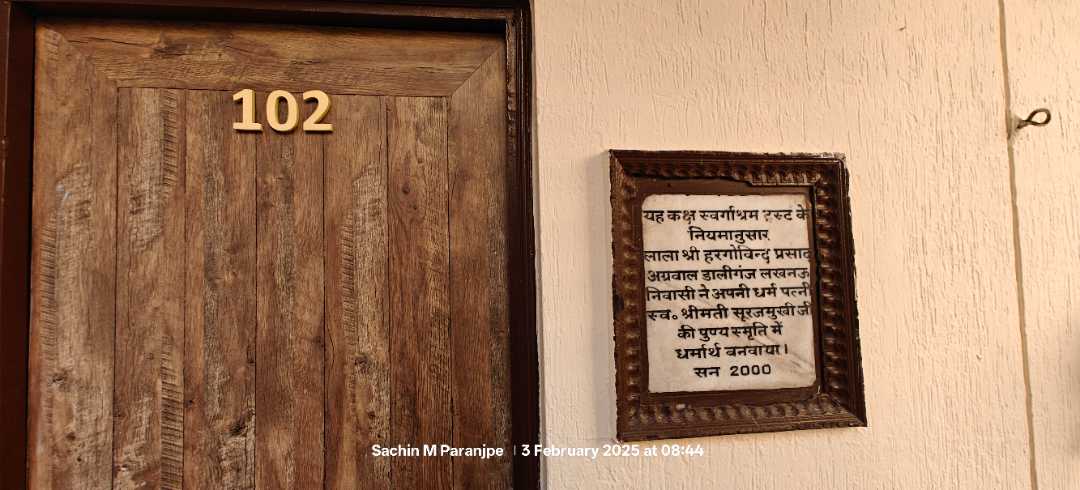 102
यह कक्ष स्वर्गाश्रम ट्रस्ट के
नियमानुसार
लाला श्री हरगोविन्द प्रसाद
अग्रवाल डालीगंज लखनऊ
निवासी ने अपनी धर्म पत्नी
स्व॰ श्रीमती सूरजमुखी जी
की पुण्य स्मृति में
धर्मार्थ बनवाया।
सन 2000
Sachin M Paranjpe | 3 February 2025 at 08:44